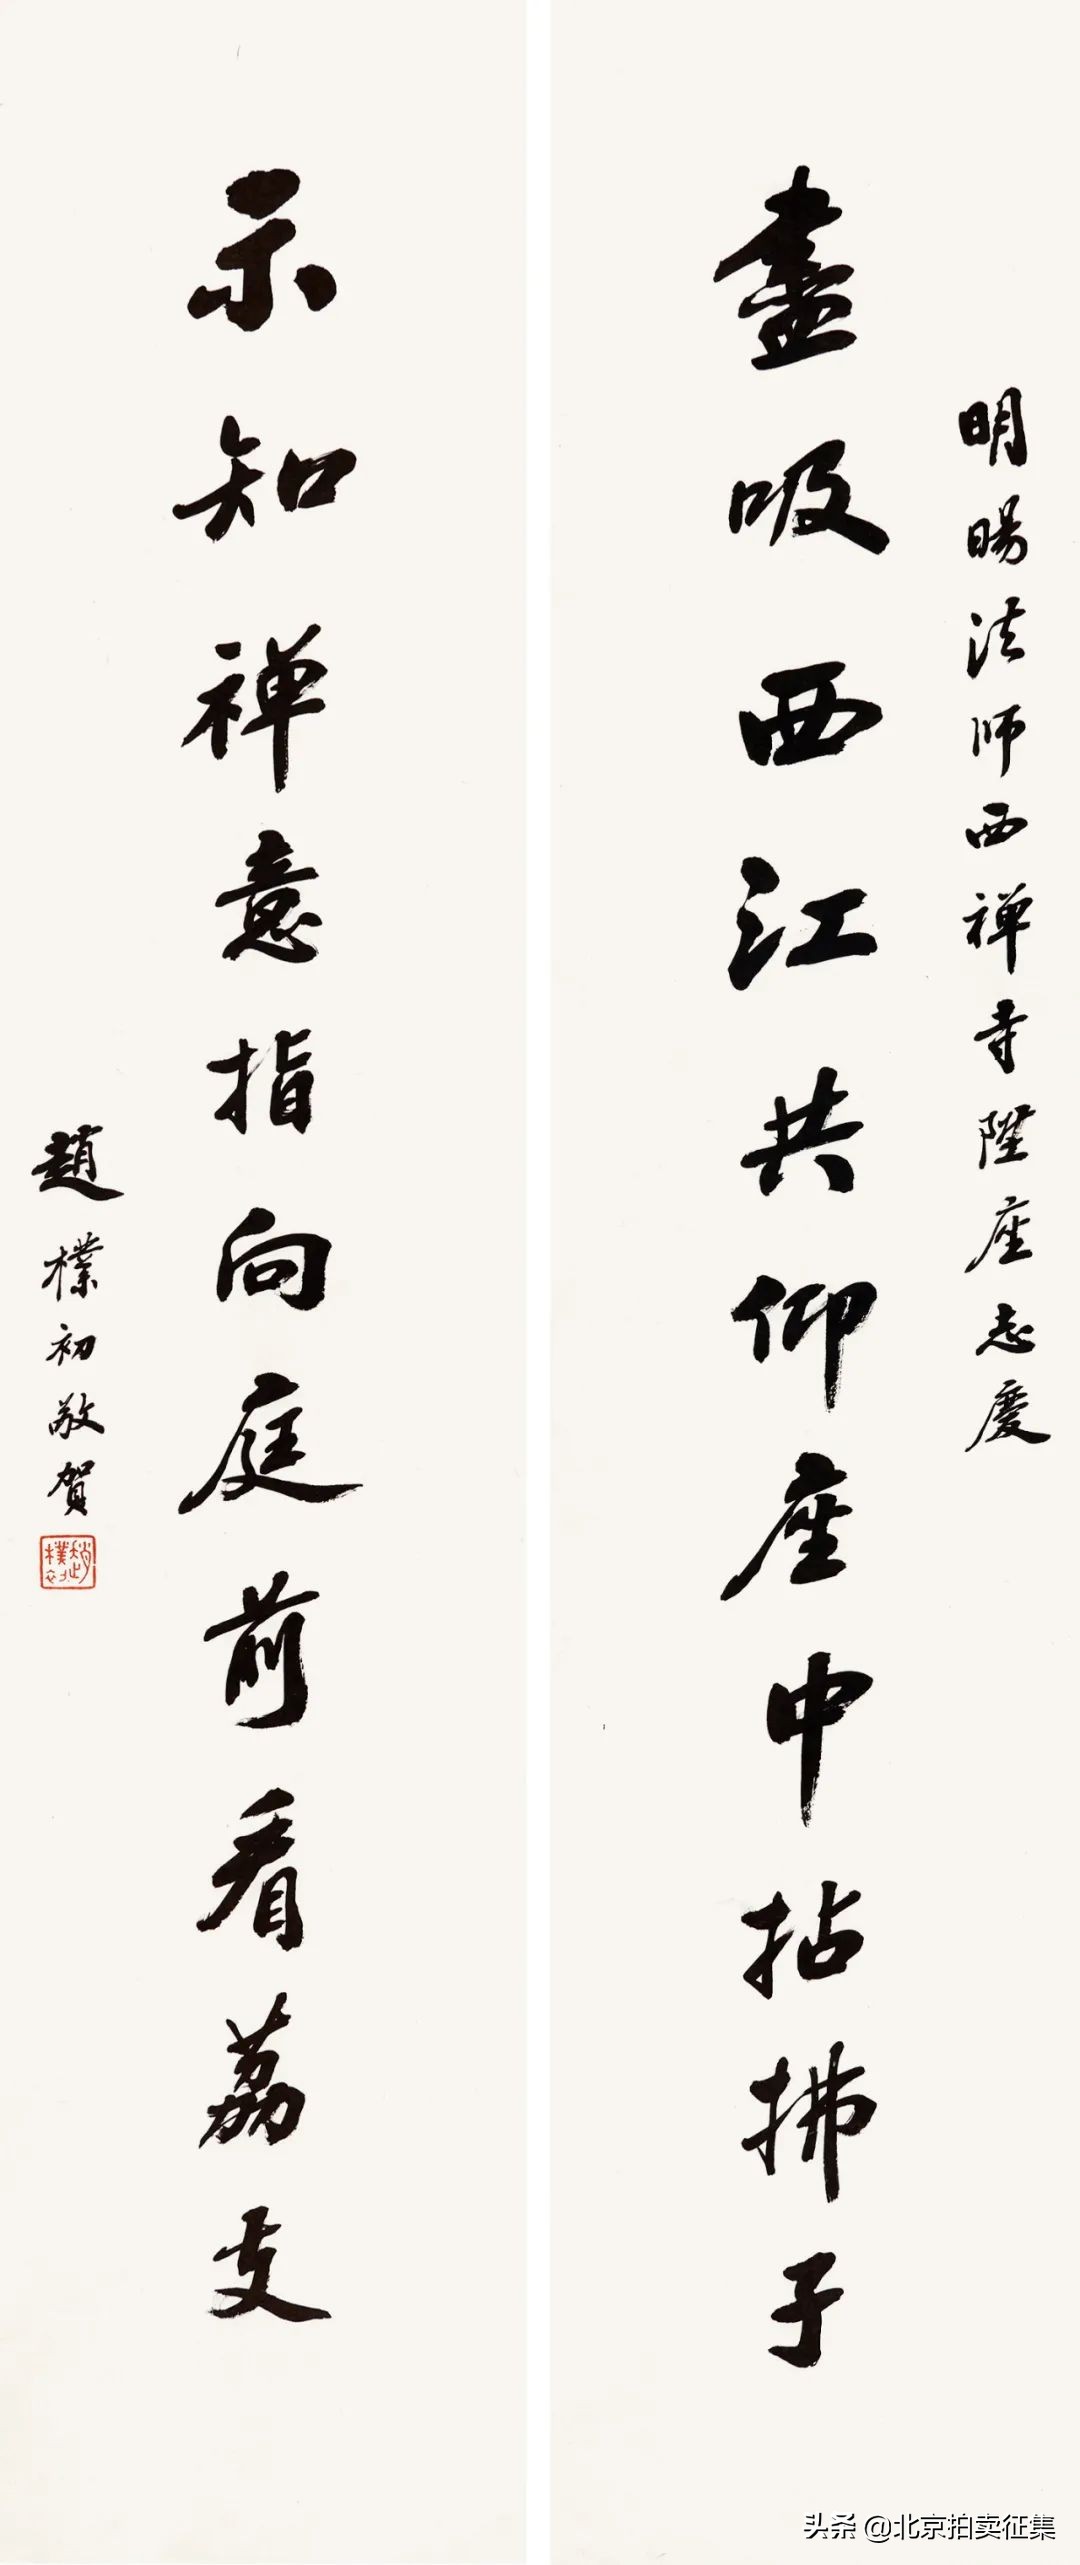 明暘法师西禅寺陞座志慶
盡吸西江共仰座中拈拂子
示知禅意指向庭前看荔支
趙樸初敬賀
趙樸初
头条 @北京拍卖征集